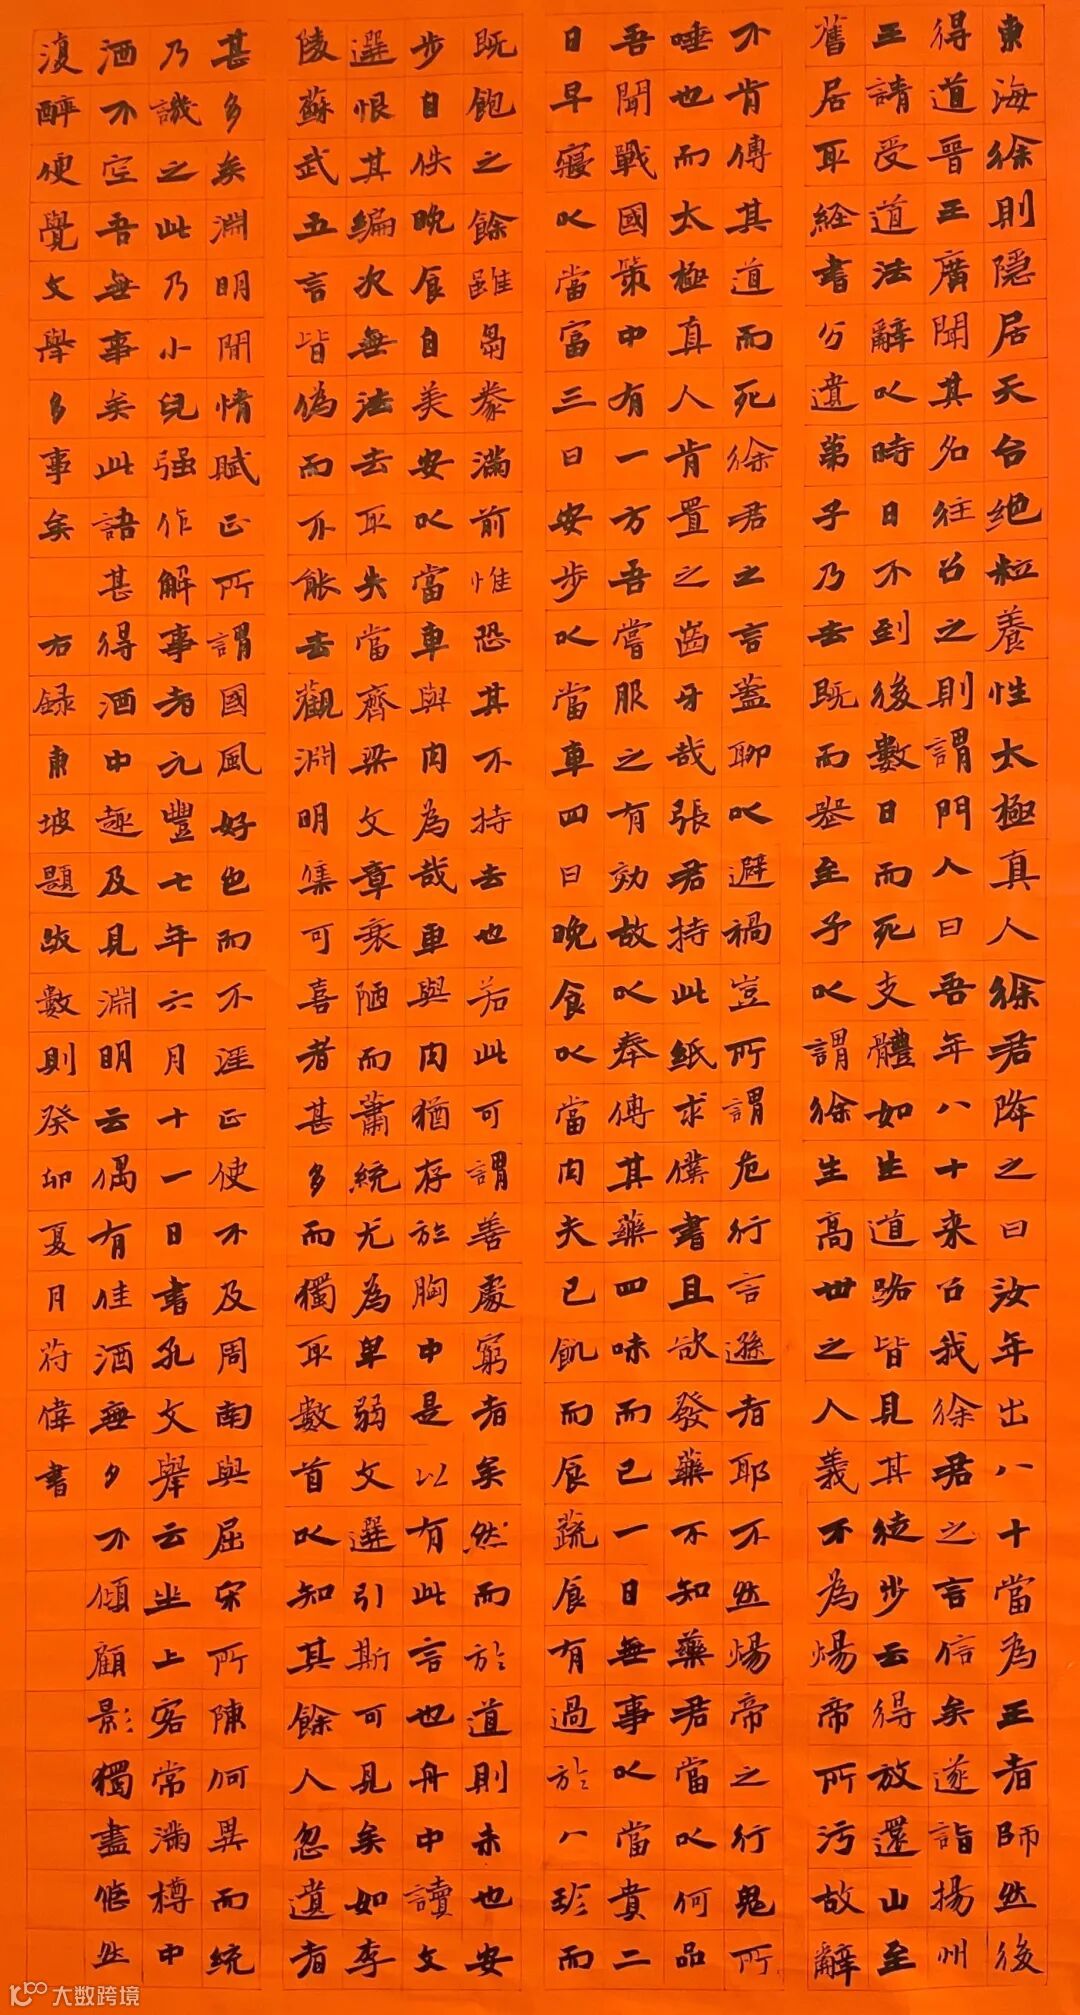 東海徐則隱居天台絶粒養性太極真人徐君降之曰汝年出八十當為王者師然後
得道晉王廣聞其名往召之則謂門人曰吾年八十来召我徐君之言信矣遂詣揚州
王請受道法辭以時日不到後數日而死支體如生道路皆見其徒步云得放還山至
舊居取經書分遺弟子乃去既而喪至予以謂徐生高世之人義不為煬帝所污故辭
不肯傳其道而死徐君之言蓋聊以避禍豈所謂危行言遜者耶不然煬帝之行鬼所
唾也而太極真人肯置之齒牙哉張君持此紙求僕書且欲發藥不知藥君當以何品
吾聞戰國策中有一方吾嘗服之有効故以奉傳其藥四味而已一日無事以當貴二
日早寢以當富三日安步以當車四日晚食以當肉夫已飢而食蔬食有過於八珍而
既飽之餘雖芻豢滿前惟恐其不持去也若此可謂善處窮者矣然而於道則未也安
步自佚晚食自美安以當車與肉為哉車與肉猶存於胸中是以有此言也舟中讀文
選恨其編次無法去取失當齊梁文章衰陋而蕭統尤為卑弱文選引斯可見矣如李
陵蘇武五言皆偽而不能去觀淵明集可喜者甚多而獨取數首以知其餘人忽遺者
甚多矣淵明閒情賦正所謂國風好色而不淫正使不及周南與屈宋所陳何異而統
乃譏之此乃小兒强作解事者元豐七年六月十一日書孔文舉云坐上客常滿樽中
酒不空吾無事矣此語甚得酒中趣及見淵明云偶有佳酒無夕不傾顧影獨盡悠然
復醉便覺文舉多事矣 右録東坡題跋數則癸卯夏月符偉書
大数跨境